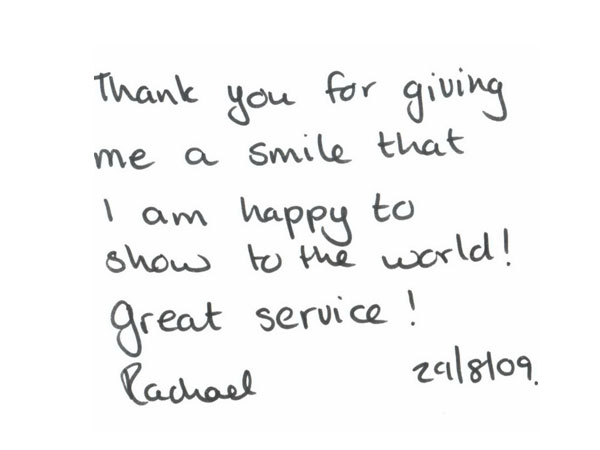 Thank you for giving
me a smile that
I am happy to
show to the world!
great service!
Rachael 29/8/09.